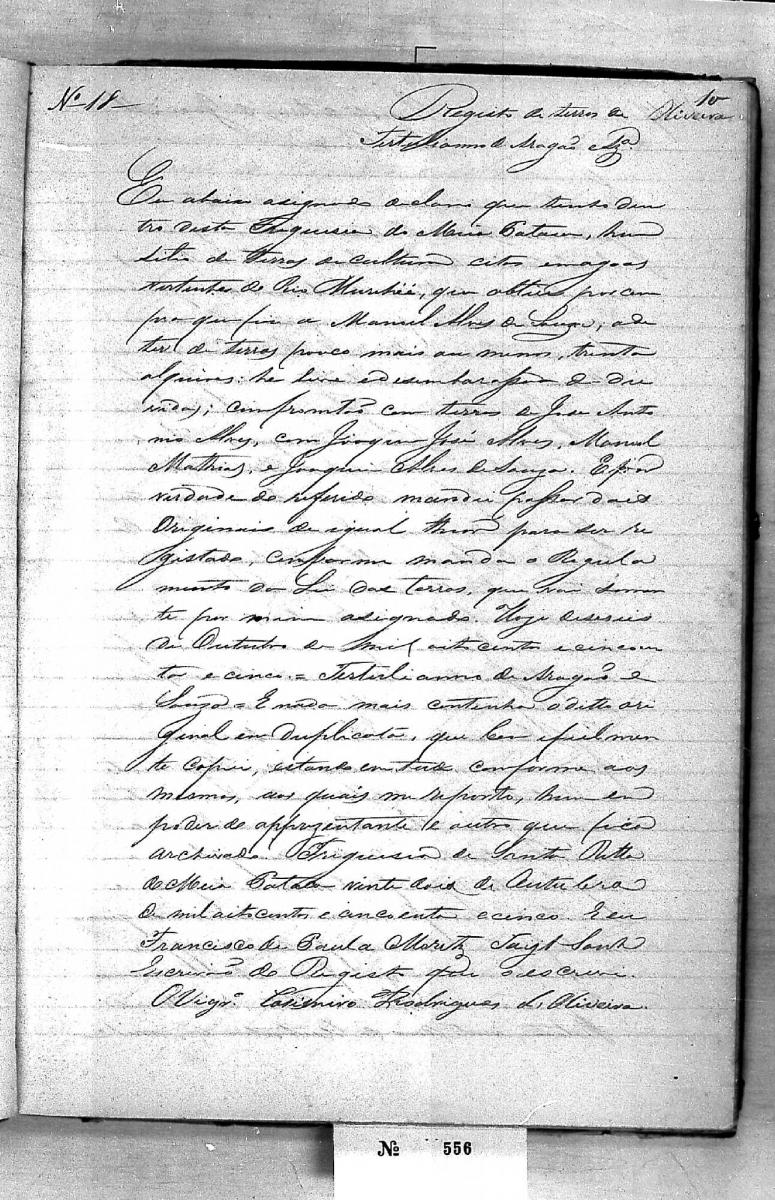 Nº 18
10
Oliveira
Registo de terras de
Tertulianno de Aragão e Sza.
Eu abaixo asignado declaro que tenho den
tro desta Freguesia do Meia Pataca, hum
sitio de terras de cultura citos em agoas
vertentes do Rio Murihé, que obtive por com
pra que fiz a Manuel Alves de Souza, e de
ter de terras pouco mais ou menos, trinta
alquires: he livre e desembarassado de du
vidas; confrontão com terras de José Anto
nio Alves, com Joaquim José Alves, Manuel
Mathias, e Joaquim Alves de Souza. E por
verdade do referido mandei passar dois
Originais de igual theor para ser re
gistado, conforme manda o Regula
mento da Lei das terras, que vai somen
te por mim asignado. Hoje deseseis
de Outubro de mil oitocento e cincoen
ta e cinco = Tertulianno de Aragão e
Souza = E nada mais continha o ditto ori
ginal em duplicata, que bem e fielmen
te copiei, estando em tudo conforme aos
mesmos, aos quais me reporto, hum em
poder do apprezentante e outro que fica
archivado. Freguesia de Santa Ritta
do Meia Pataca vinte dois de Outubro
de mil oitocentos e cincoenta e cinco. E eu
Francisco de Paula Moretz
Escrivão do Registo que o escrevi.
O Vigro. Casimiro Rodrigues de Oliveira.
Nº 556